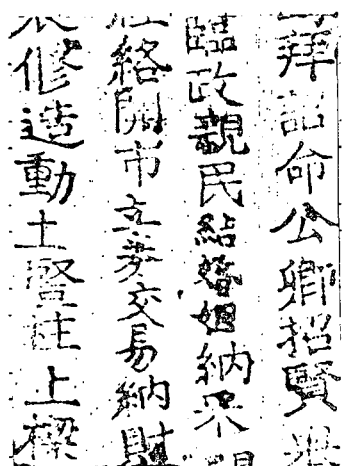 拜詔命公卿招賢
臨政親民結婚姻納采問
經絡開市立券交易納財
修造動土豎柱上樑